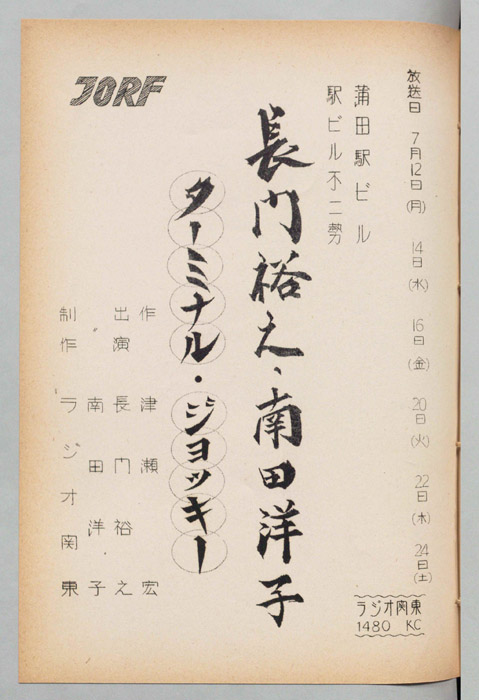 放送日 7月12日(月) 14日(水) 16日(金) 20日(火) 22日(木) 24日(土)
ラジオ関東
1480 KC
蒲田駅ビル
駅ビル不二勢
長門裕之・南田洋子
ターミナル・ジョッキー
JORF
作 津瀬宏
出演 長門裕之
南田洋子
制作 ラジオ関東